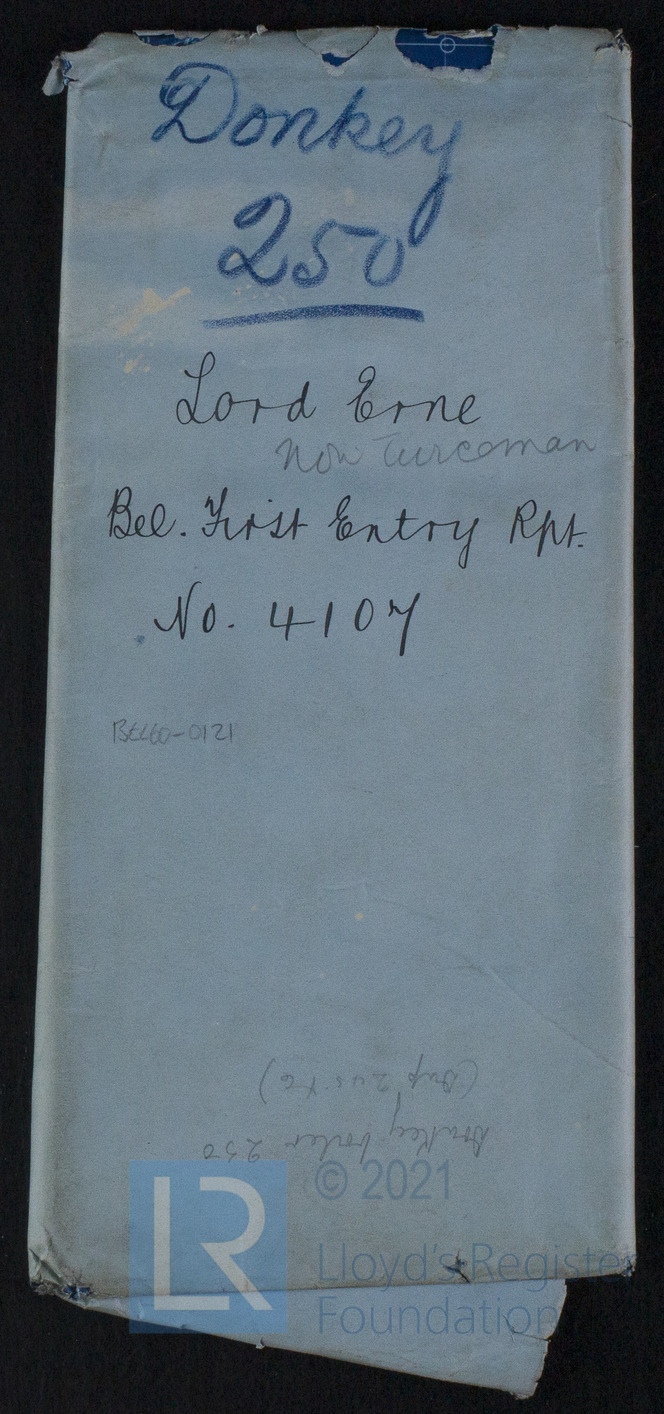 Donkey
250
Lord Erne
Now Turcoman
Bel. First Entry Rpt.
No. 4107
BEL60-0121
Donkey boiler 250
(Dup
LR
© 2021
Lloyd's Register
Foundation